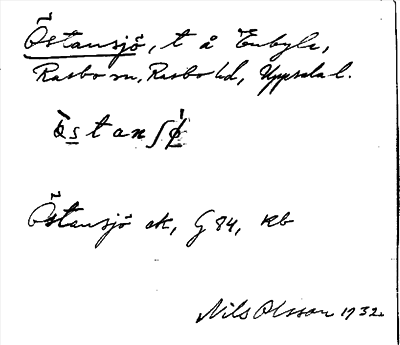 Östansjö, t å Eneby lr,
Rasbo sn, Rasbo hd, Uppsala l.
Östansjö ek, G 84, Kb
Nils Olsson 1932.